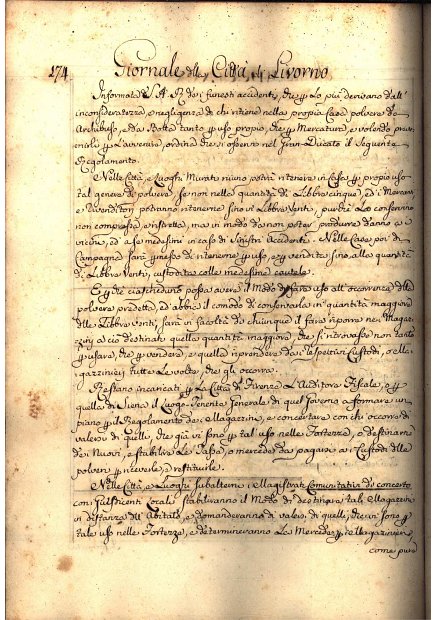 174 Giornale della Città di Livorno
Informata S. A. R. dei funesti accidenti, che p Lo più derivano dall'
inconsideratezza, e negligenza di chi ritiene nella propria Casa polvere da
Archibuso, e da Botta tanto p uso proprio, che p Mercatura, e volendo preve
nirli p L'avvenire, ordina che si osservi nel Gran-Ducato il Seguente
Regolamento.
Nelle Città, e Luoghi Murati niuno potrà ritenere in Casa p proprio uso
tal genere di polvere, se non nella quantità di Libbre cinque, ed i Mercanti
e Rivenditori potranno ritenerne sino in Libbre Venti, purchè Lo conservino
non compressa, e ristretta, ma in modo da non poter produrre danno a'
vicini, ed a se medesimi in caso di Sinistri Accidenti. Nelle Case poi di
Campagna sarà pmesso di ritenerne p uso, e p vendita sino alla quantità
di Libbre Venti, custodita colle medesime cautele.
E p che ciascheduno possa avere il Modo di fare uso all'occorrenza della
polvere predetta, ed abbia il comodo di conservarla in quantità maggiore
delle Libbre venti, sarà in facoltà di chiunque il fare riporre nei Magaz-
zini a ciò destinati quella quantità maggiore, che si ritrovasse non tanto
p usare, che p vendere, e quella riprendere da i respettivi Custodi, o Ma
gazzinieri tutte Le volte, che gli occorra.
Restano incaricati p La Città di Firenze L'Auditore Fiscale, e p
quella di Siena il Luogo Tenente Generale di quel Governo a formare un
piano p il Regolamento dei Magazzini, e concertare con chi occorre di
valersi di quelli, che già vi sono p tal uso nelle Fortezze, o destinarne
de' Nuovi, e stabilire La Tassa, o mercede da pagarsi a i Custodi della
polvere p riceverla, e restituirla.
Nelle Città, e Luoghi subalterni i Magistrati Comunitativi di concerto
con i Giusdicenti Locali stabiliranno il Modo di destinare tali Magazzini
in distanza dell'Abitato, e domanderanno di valersi di quelli, che vi sono p
tale uso nelle Fortezze, e determineranno La Mercede p i Magazzinieri,
come pure